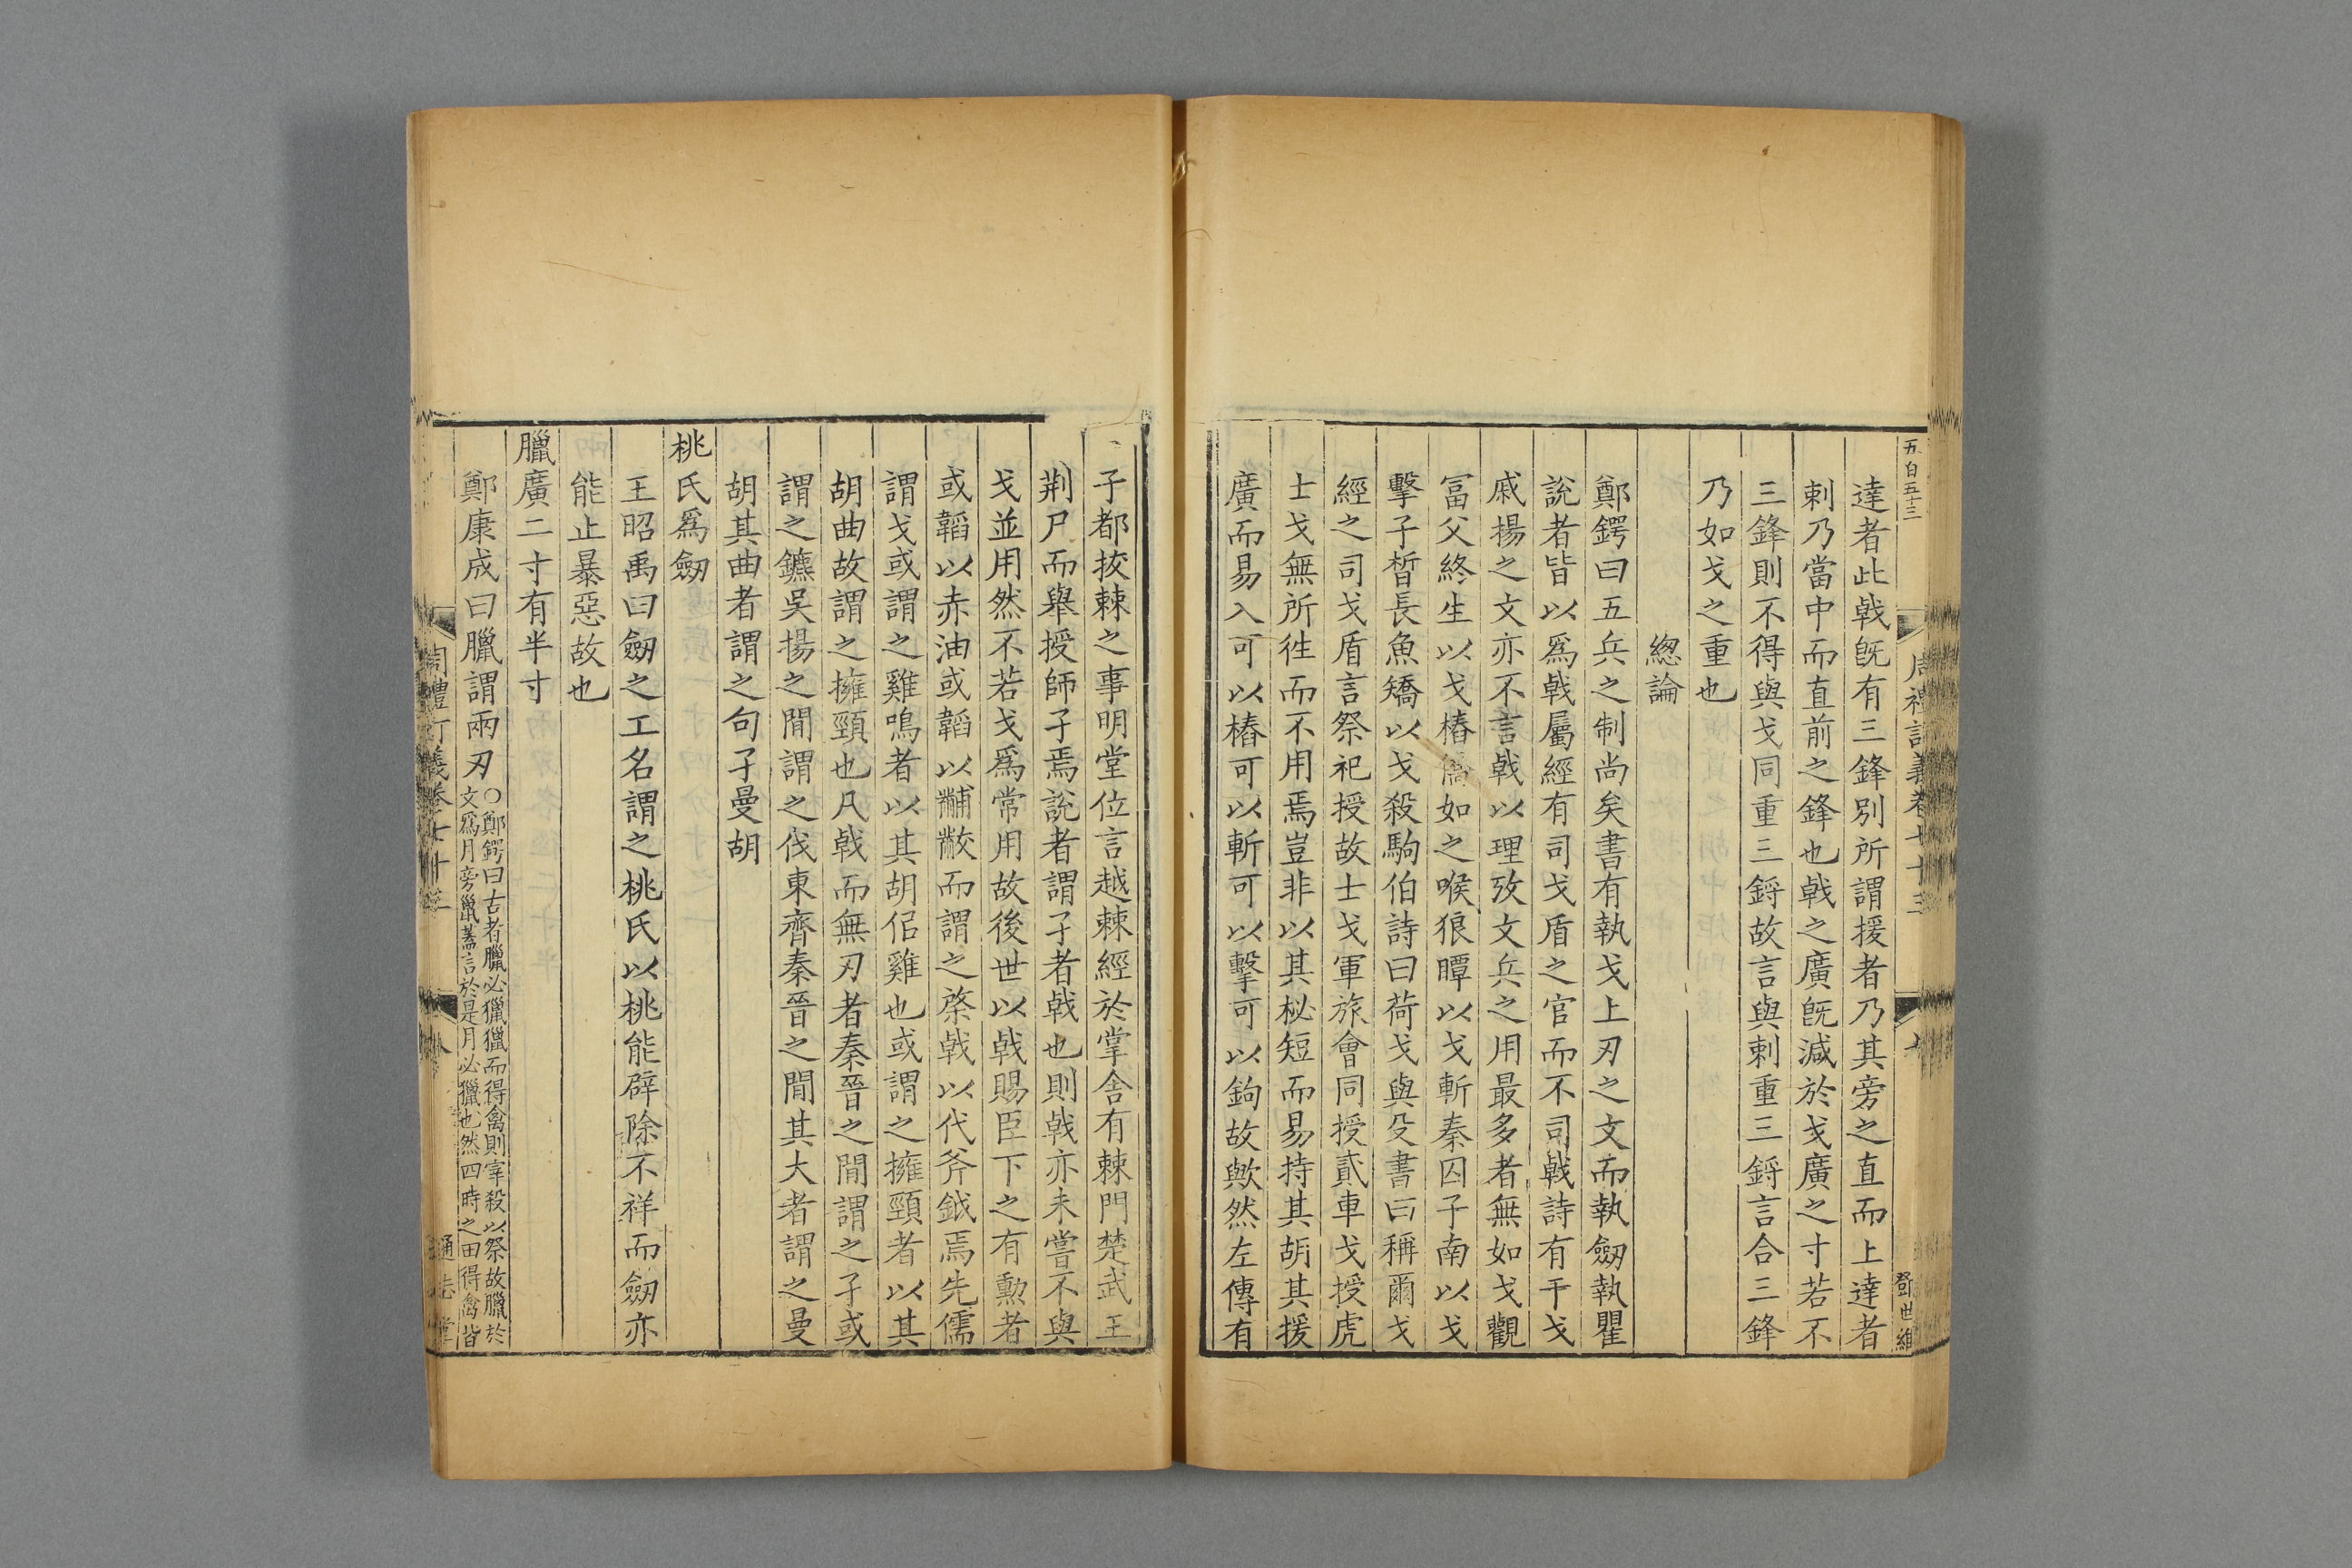 五百五十三
周禮訂義卷七十三
七
鄧世維
達者此戟旣有三鋒別所謂援者乃其旁之直而上達者
刺乃當中而直前之鋒也戟之廣旣減於戈廣之寸若不
三鋒則不得與戈同重三鋝故言與刺重三鋝言合三鋒
乃如戈之重也
緫論
鄭鍔曰五兵之制尚矣書有執戈上刃之文而執劒執瞿
說者皆以爲戟屬經有司戈盾之官而不司戟詩有干戈
戚揚之文亦不言戟以理攷文兵之用最多者無如戈觀
冨父終生以戈樁僑如之喉狼瞫以戈斬秦囚子南以戈
擊子晳長魚矯以戈殺駒伯詩曰荷戈與殳書曰稱爾戈
經之司戈盾言祭祀授故士戈軍旅會同授貳車戈授虎
士戈無所徃而不用焉豈非以其柲短而易持其胡其援
廣而易入可以樁可以斬可以擊可以鉤故歟然左傳有
子都拔棘之事明堂位言越棘經於掌舍有棘門楚武王
荆尸而舉授師孑焉說者謂孑者戟也則戟亦未嘗不與
戈並用然不若戈爲常用故後世以戟賜臣下之有勲者
或韜以赤油或韜以黼黻而謂之棨戟以代斧鉞焉先儒
謂戈或謂之雞鳴者以其胡佀雞也或謂之擁頸者以其
胡曲故謂之擁頸也凡戟而無刃者秦晉之閒謂之孑或
謂之鏔吳揚之閒謂之伐東齊秦晉之閒其大者謂之曼
胡其曲者謂之句孑曼胡
桃氏爲劒
王昭禹曰劒之工名謂之桃氏以桃能辟除不祥而劒亦
能止暴惡故也
臘廣二寸有半寸
鄭康成曰臘謂兩刃
○鄭鍔曰古者臘必獵獵而得禽則宰殺以祭故臘於
文爲月旁巤蓋言於是月必獵也然四時之田得禽皆
周禮訂義卷七十三
八
通志堂